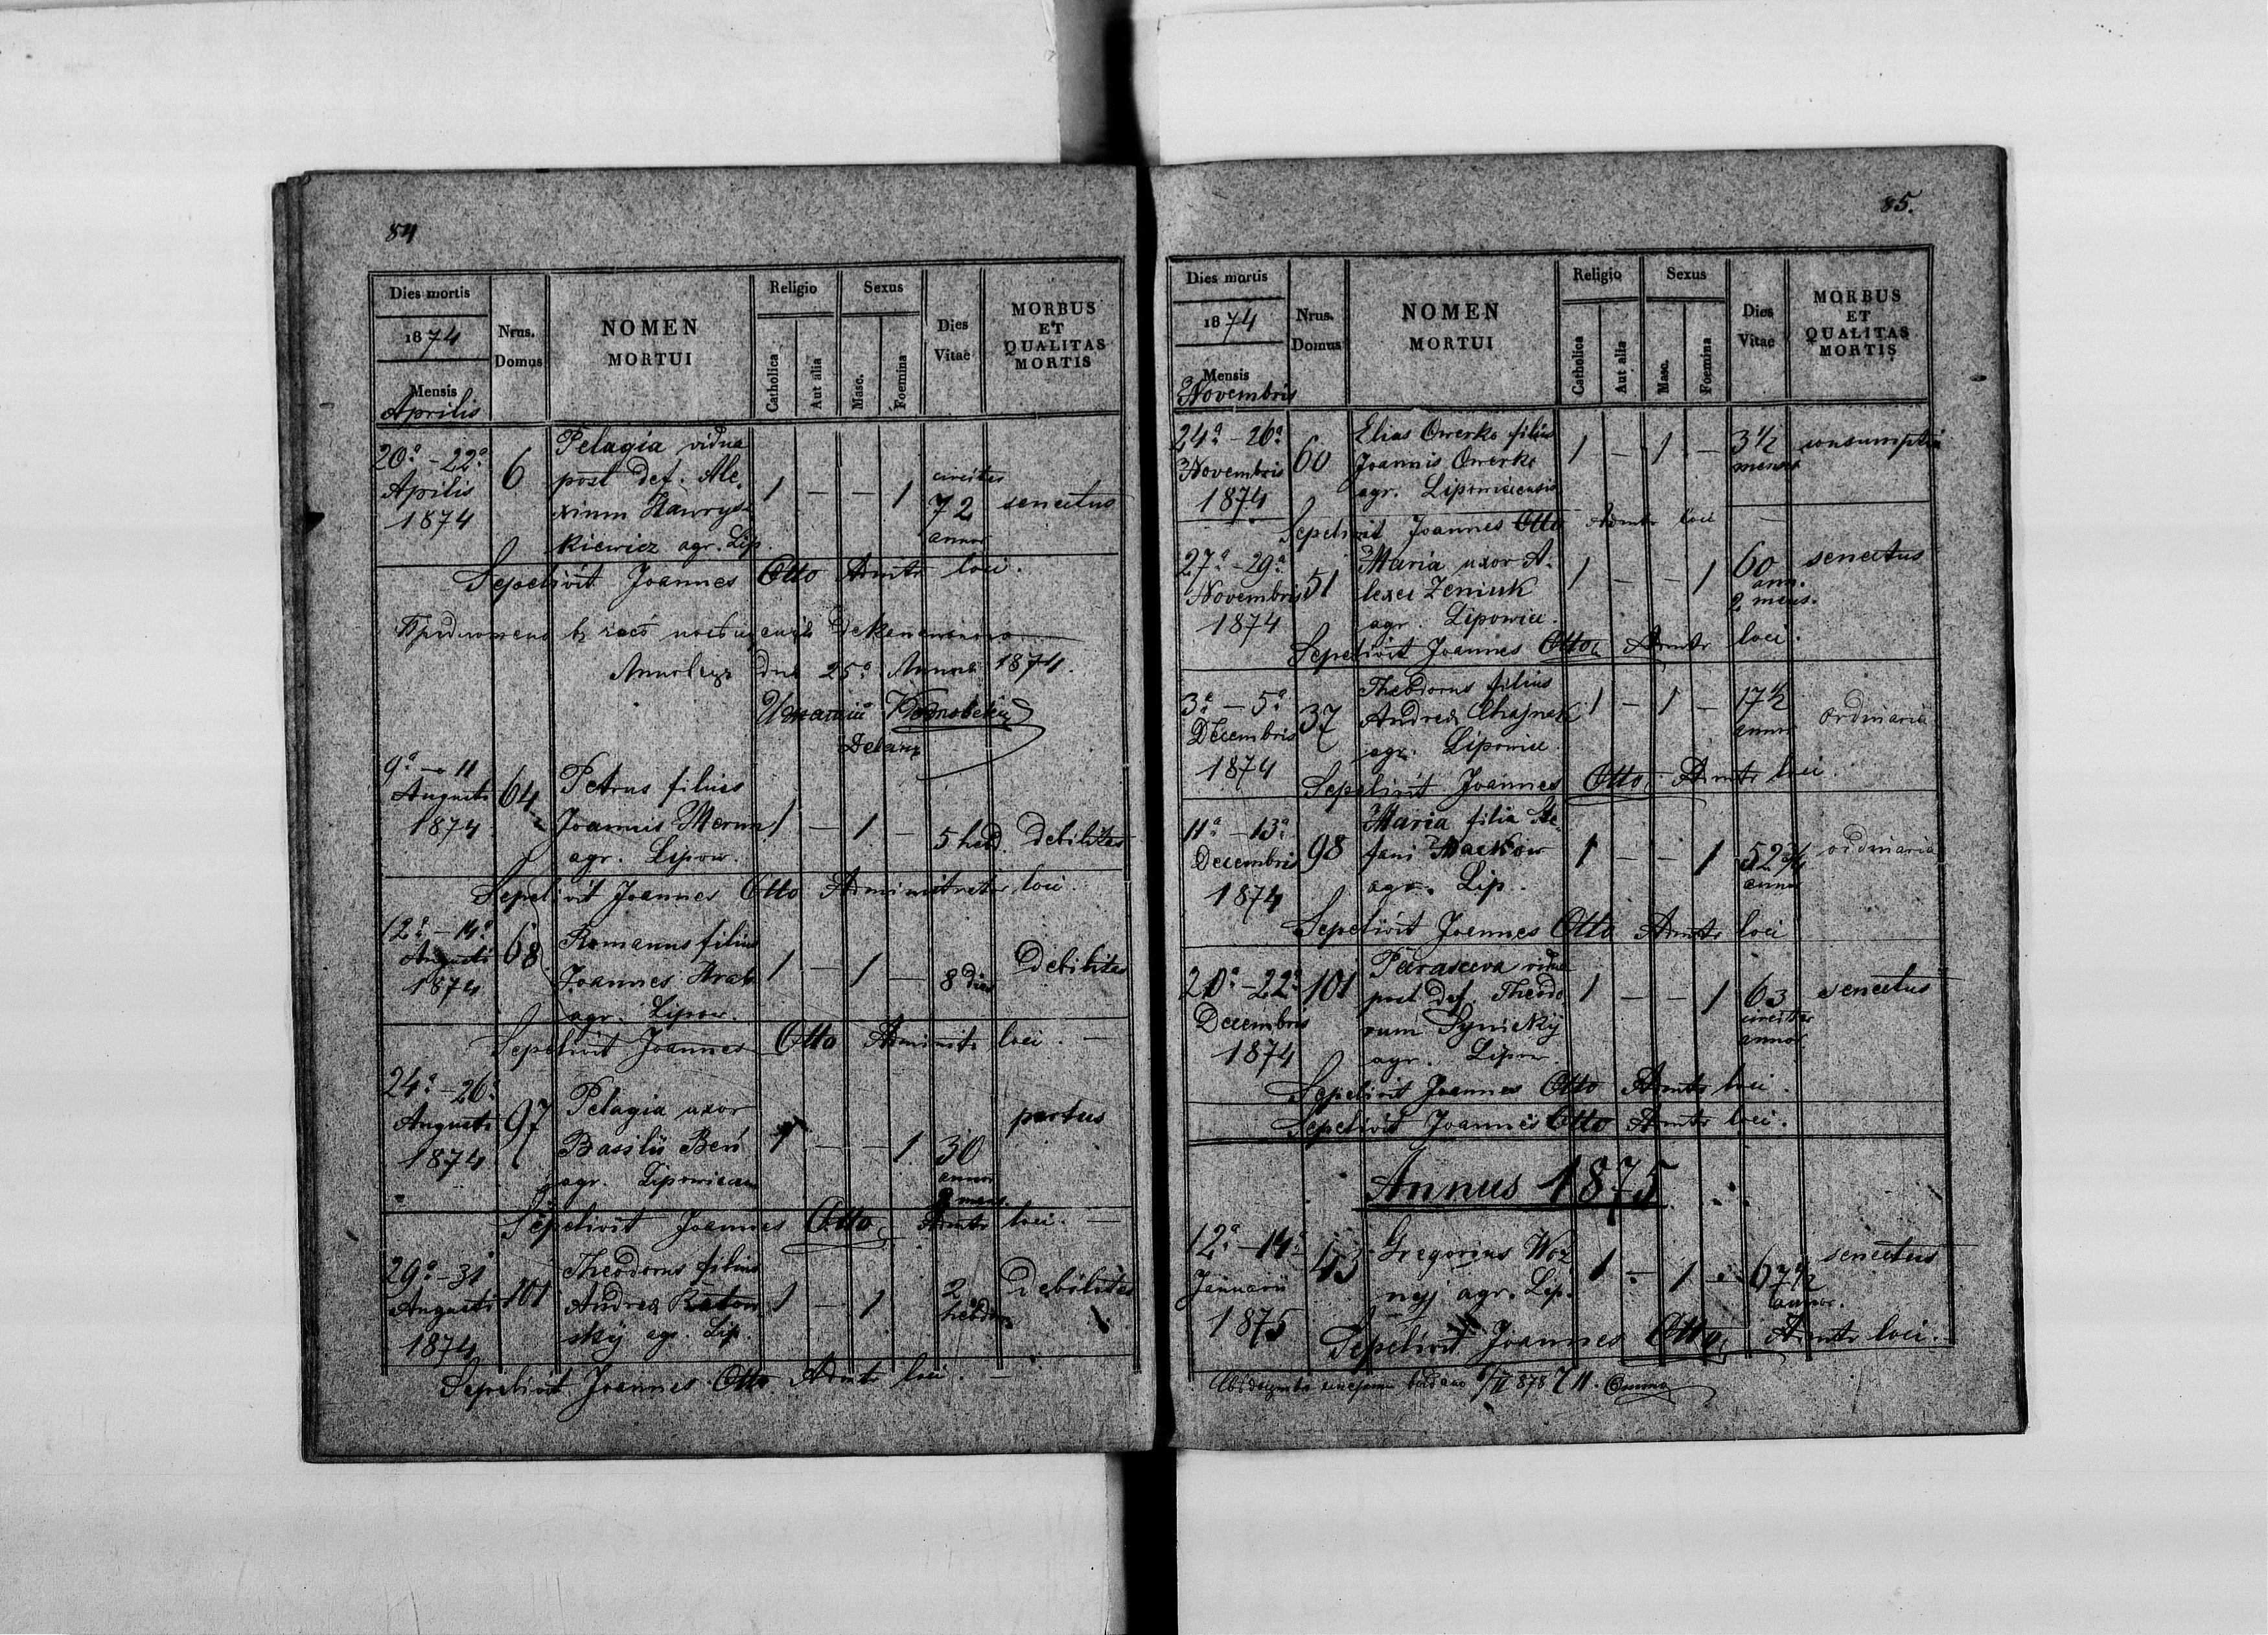 84
Dies mortis
1874
Mensis
Aprilis
Nrus.
Domus
NOMEN
MORTUI
Religio
Catholica
Aut alia
Sexus
Masc.
Foemina
Dies
Vitae
MORBUS
ET
QUALITAS
MORTIS
20a - 22a
Aprilis
1874
6
Pelagia vidua
post def. Ale-
xium Hawrys-
kiewicz agr. Lip.
1 — — 1
circiter
72
annor
senectus
Sepelivit Joannes Otto Admtr loci.
dnia 25a 1874.
9a — 11
Augusti
1874
64
Petrus filius
Joannis
agr. Lipow.
1 — 1 —
5 hebd.
debilitas
Sepelivit Joannes Otto Administrator loci.
12a - 14a
Augusti
1874
68
Romanus filius
Joannes Hrab
agr. Lipow.
1 — 1 —
8 dies
Debilitas
Sepelivit Joannes Otto Administr loci. —
24a - 26a
Augusti
1874
97
Pelagia uxor
Basilii Beń
agr.
1 — — 1
30
annor
mens.
partus
Sepelivit Joannes Otto Admtr loci. —
29a - 31
Augusti
1874
101
Theodorus filius
Andrea
sky agr. Lip.
1 — 1
2
hebdm
Debilitas
Sepelivit Joannes Otto Admtr loci. —
85.
Dies mortis
1874
Mensis
Novembris
Nrus.
Domus
NOMEN
MORTUI
Religio
Catholica
Aut alia
Sexus
Masc.
Foemina
Dies
Vitae
MORBUS
ET
QUALITAS
MORTIS
24a - 26a
Novembris
1874
60
Elias Owerko filius
Joannis Owerko
agr. Lipowicensis
1 — 1 —
3 1/2
mens
consumptio
Sepelivit Joannes Otto Admtr loci —
27a - 29a
Novembris
1874
51
Maria uxor A-
lexei Zeniuk
agr. Lipowice.
1 — — 1
60
ann.
2 mens.
senectus
Sepelivit Joannes Otto Admtr loci.
3a — 5a
Decembris
1874
37
Theodorus filius
Andrea
agr. Lipowice.
1 — 1 —
17 1/2
annor
Ordinaria
Sepelivit Joannes Otto Admtr loci.
11a - 13a
Decembris
1874
98
Maria filia Ste-
fani Maćkow
agr. Lip.
1 — — 1
52 3/4
annor
ordinaria
Sepelivit Joannes Otto Admtr loci
20a - 22a
Decembris
1874
101
Parasceva vidua
post def. Theodo
rum Synickij
agr. Lipow.
1 — — 1
63
circiter
annor
senectus
Sepelivit Joannes Otto Admtr loci.
Sepelivit Joannes Otto Admtr loci.
Annus 1875
12a - 14a
Januarii
1875
Gregorius Woz
nyj agr. Lip.
1 — 1 —
67 1/2
annor.
senectus
Sepelivit Joannes Otto Admtr loci.